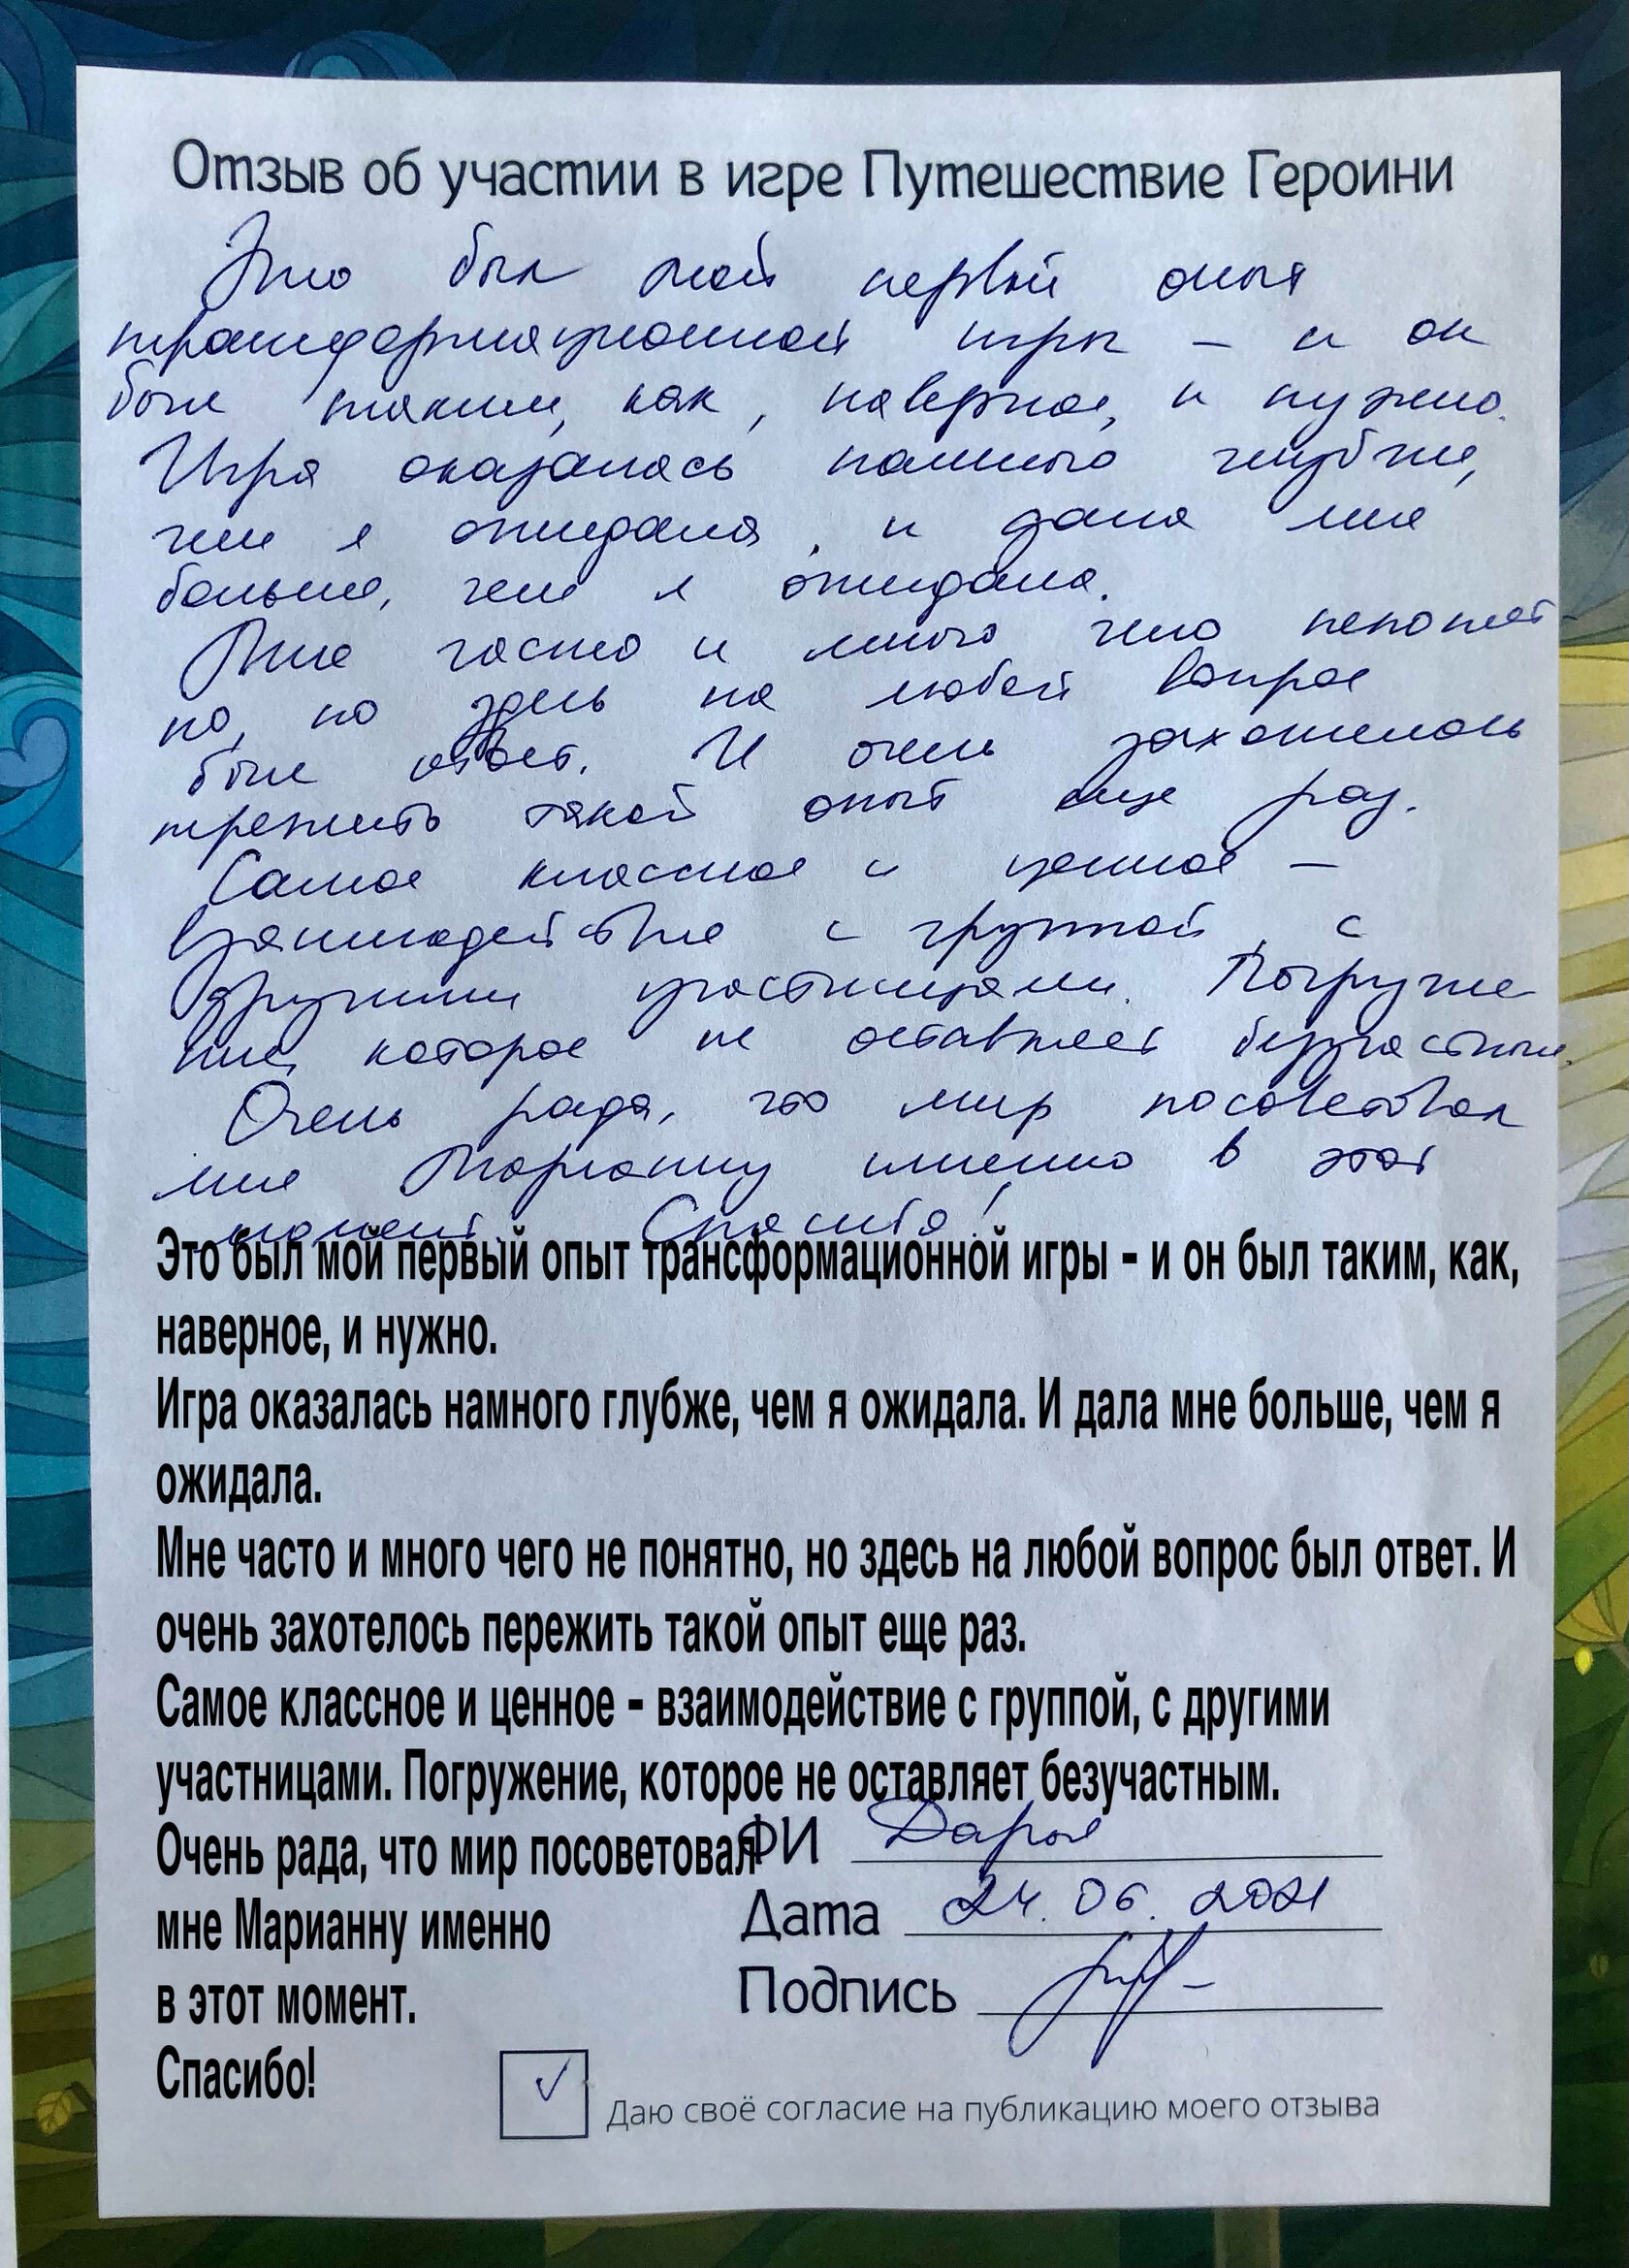 Отзыв об участии в игре Путешествие Героини
Это был мой первый опыт
трансформационной игры – и он
был таким, как, наверное, и нужно.
Игра оказалась намного глубже,
чем я ожидала, и дала мне
больше, чем я ожидала.
Мне часто и много чего непонят
но, но здесь на любой вопрос
был ответ. И очень захотелось
прожить такой опыт еще раз.
Самое классное и ценное –
взаимодействие с группой, с
другими участницами. Погруже
ние, которое не оставляет безучастным.
Очень рада, что мир посоветовал
мне Марианну именно в этот
момент. Спасибо!
Это был мой первый опыт трансформационной игры - и он был таким, как,
наверное, и нужно.
Игра оказалась намного глубже, чем я ожидала. И дала мне больше, чем я
ожидала.
Мне часто и много чего не понятно, но здесь на любой вопрос был ответ. И
очень захотелось пережить такой опыт еще раз.
Самое классное и ценное - взаимодействие с группой, с другими
участницами. Погружение, которое не оставляет безучастным.
Очень рада, что мир посоветовал
мне Марианну именно
в этот момент.
Спасибо!
ФИ Дарья
Дата 24.06.2021
Подпись
Даю своё согласие на публикацию моего отзыва